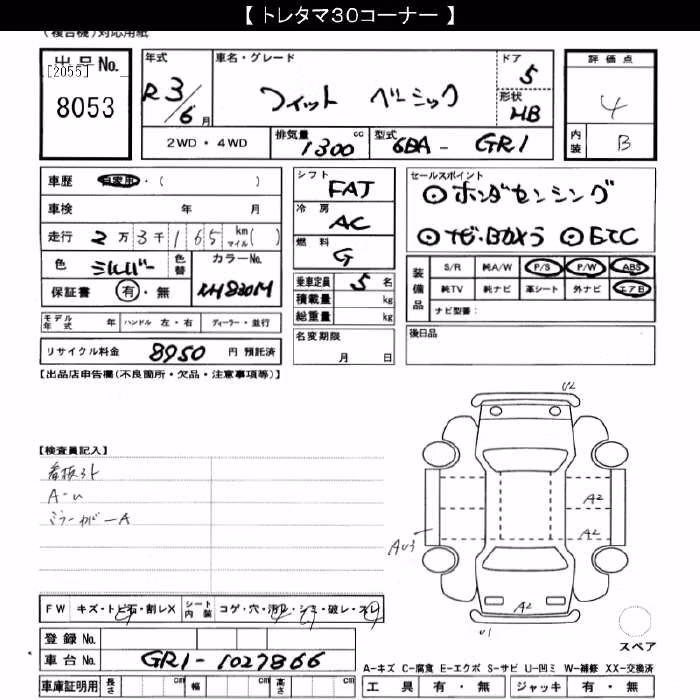 【 トレタマ30コーナー 】
(複合機)対応用紙
出品No.
[2055]
8053
年式
R3/6月
車名・グレード
フィット ベーシック
ドア
5
形状
HB
評価点
4
内装
B
2WD・4WD
排気量
1300 cc
型式
6BA - GR1
車歴 自家用・( )
車検 年 月
走行 2万3千165 km マイル( )
色 シルバー
色替
カラーNo.
NH830M
保証書 有・無
モデル年式 年 ハンドル 左・右 ディーラー・並行
リサイクル料金 8950 円 預託済
シフト
FAT
冷房
AC
燃料
G
乗車定員 5 名
積載量 kg
総重量 kg
名変期限
月 日
セールスポイント
⊙ホンダセンシング
⊙ナビ.Bカメラ ⊙ETC
装備品
S/R 純A/W P/S P/W ABS
純TV 純ナビ 革シート 外ナビ エアB
ナビ型番:
後日品
【出品店申告欄(不良箇所・欠品・注意事項等)】
【検査員記入】
看板跡
A-U
ミラーガバーA
U2
A2
A2
AU3
A2
U1
スペア
FW キズ・トビ石・割レX
シート内装 コゲ・穴・汚レ・シミ・破レ・スレ
登録No.
車台No. GR1-1027866
車庫証明用 長さ cm 幅 cm 高さ cm
A-キズ C-腐食 E-エクボ S-サビ U-凹ミ W-補修 XX-交換済
工具 有・無 ジャッキ 有・無